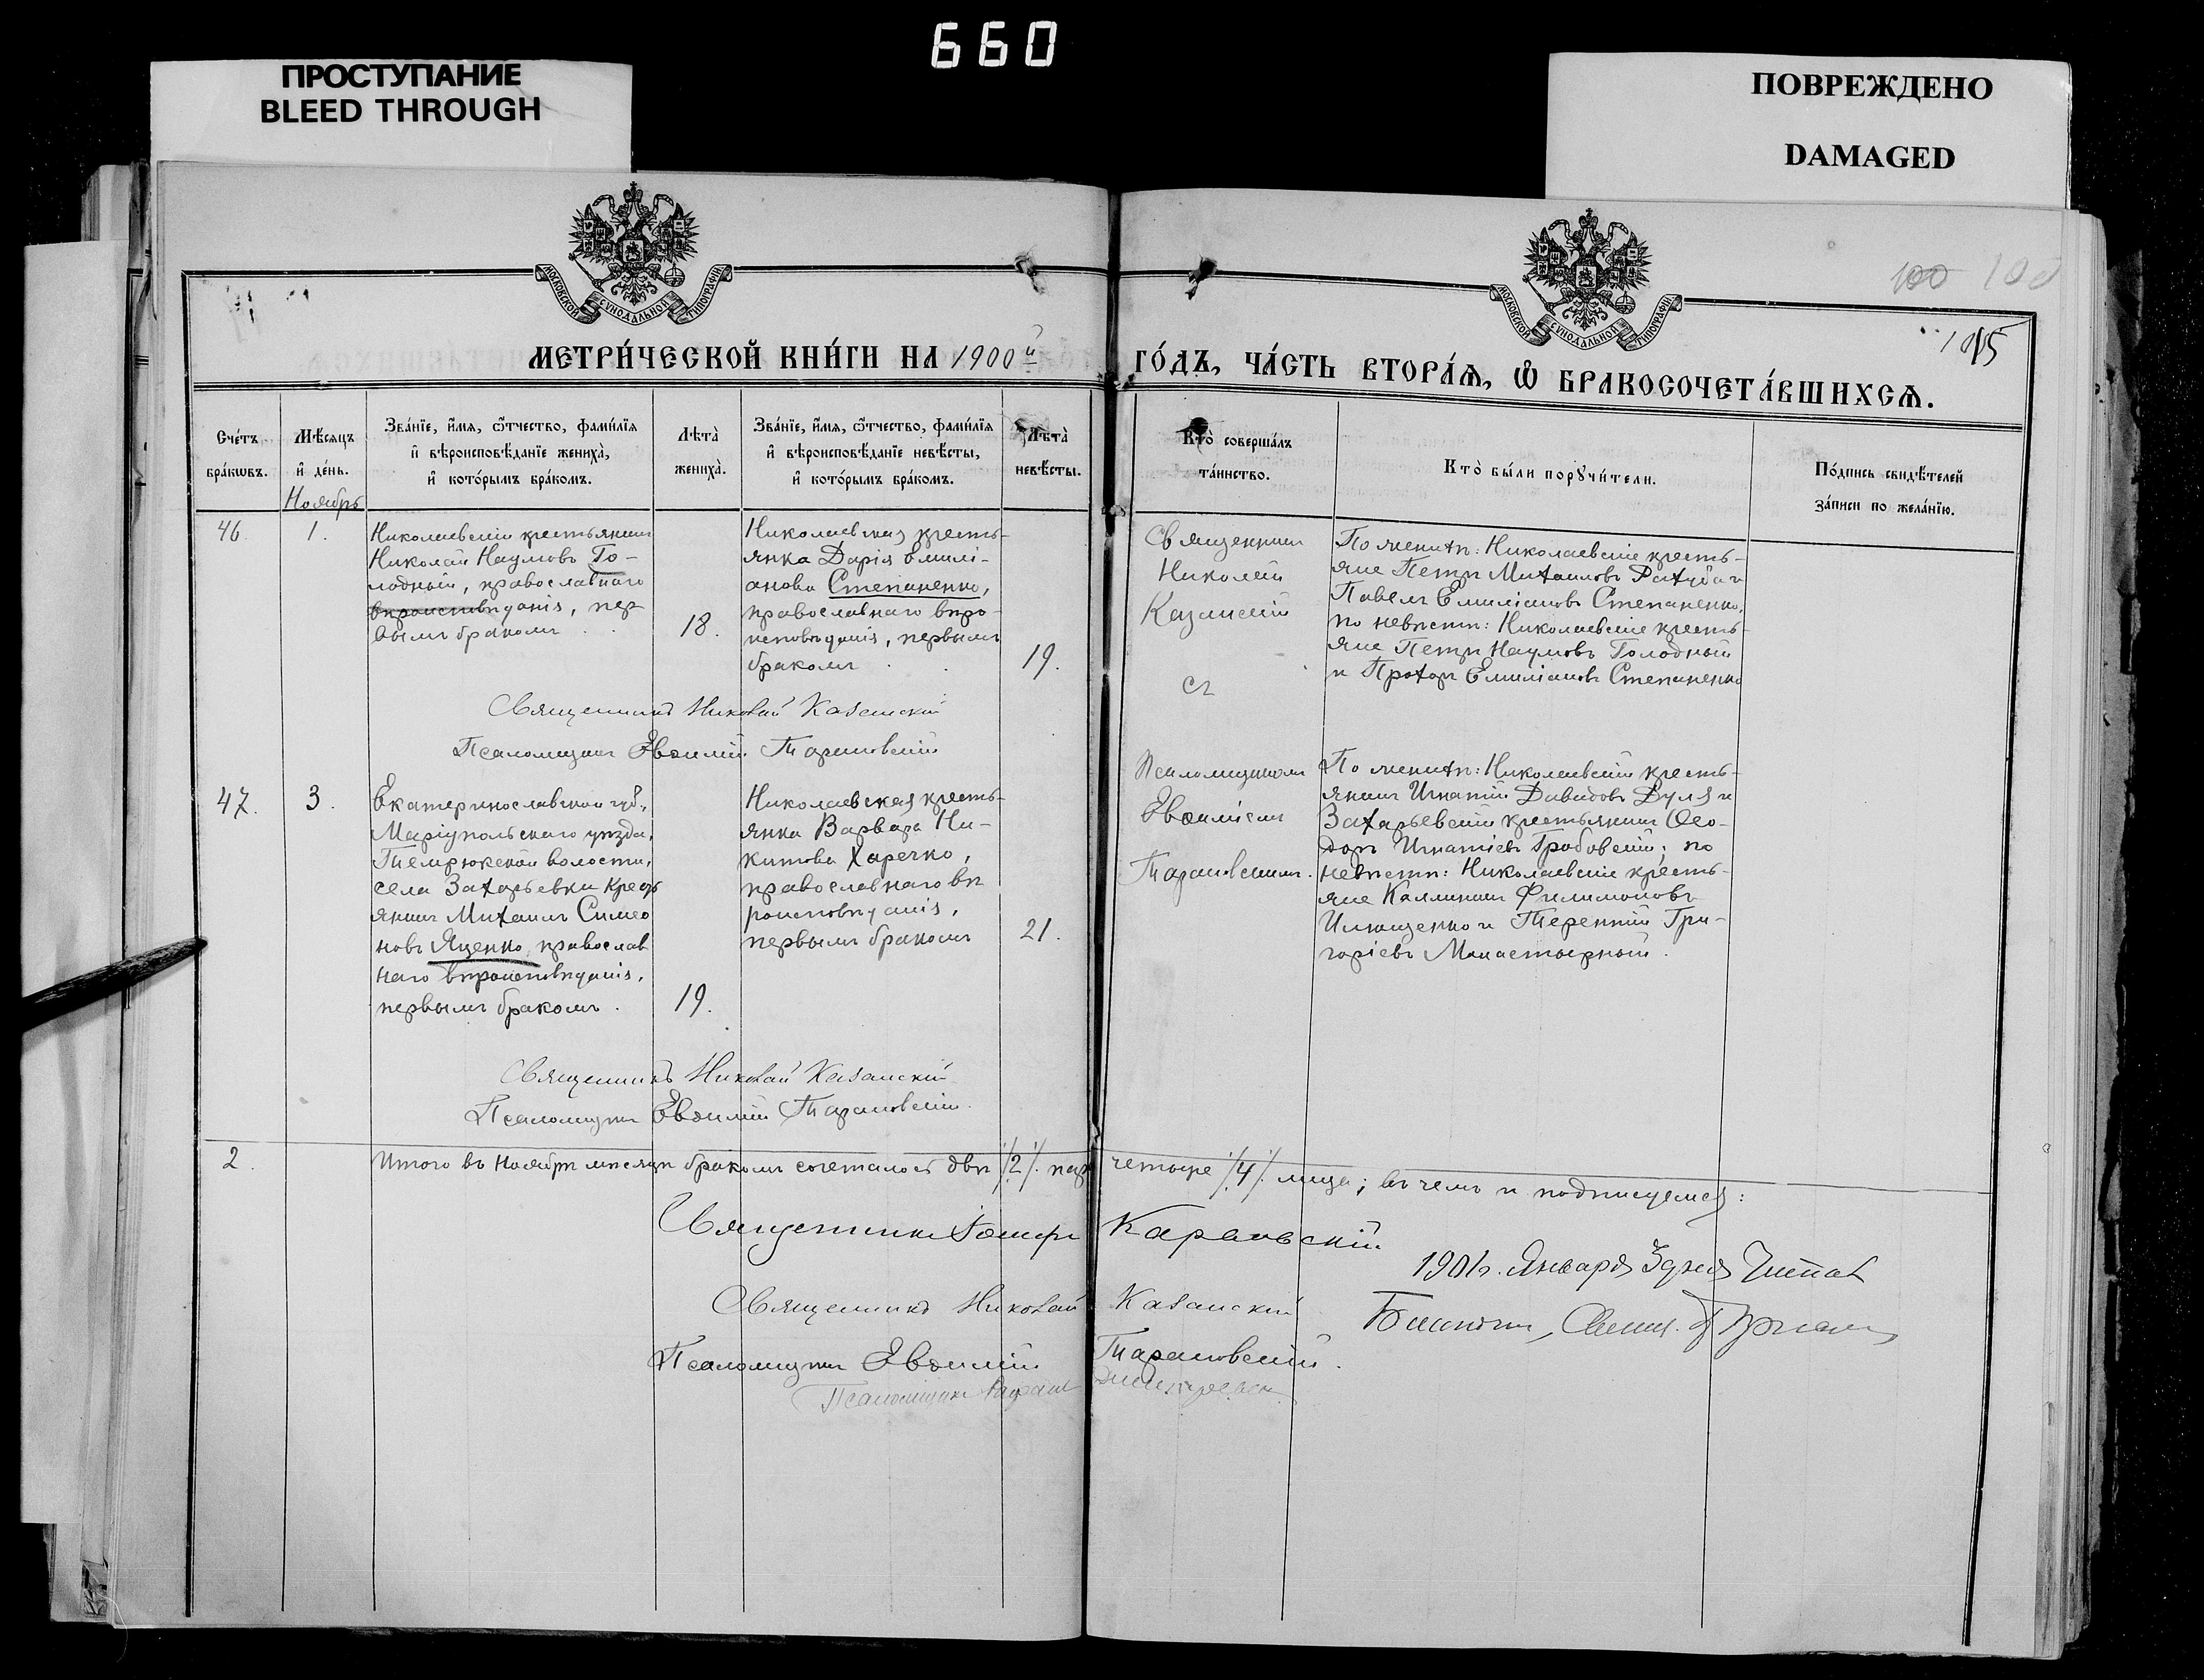 660
ПРОСТУПАНИЕ
BLEED THROUGH
ПОВРЕЖДЕНО
DAMAGED
МОСКОВСКОЙ СѴНОДАЛЬНОЙ ТИПОГРАФІИ
МОСКОВСКОЙ СѴНОДАЛЬНОЙ ТИПОГРАФІИ
100 100
105
МЕТРИ́ЧЕСКОЙ КНИ́ГИ НА 1900й ГО́ДЪ, ЧА́СТЬ ВТОРА́Ѧ, Ѡ҆ БРАКОСОЧЕТА́ВШИХСѦ.
Сче́тъ бра́кѡвъ.
Мѣ́сяцъ и҆ де́нь.
Зва́нїе, и҆́мѧ, ѻ҆́тчество, фами́лїѧ
и҆ вѣроисповѣ́данїе жениха̀,
и҆ кото́рымъ бра́комъ.
Лѣта̀ жениха̀.
Зва́нїе, и҆́мѧ, ѻ҆́тчество, фами́лїѧ
и҆ вѣроисповѣ́данїе невѣ́сты,
и҆ кото́рымъ бра́комъ.
Лѣта̀ невѣ́сты.
Кто̀ соверша́лъ та́инство.
Кто̀ бы́ли порꙋчи́тели.
По́дпись свидѣ́телей
за́писи по жела́нїю.
Ноябрь
46
1.
Николаевскій крестьянинъ
Николай Наумовъ Го-
лодный, православнаго
вѣроисповѣданія, пер
вымъ бракомъ
18.
Николаевская кресть-
янка Дарія Емилі-
анова Степаненко,
православнаго вѣро-
исповѣданія, первымъ
бракомъ
19.
Священникъ
Николай
Казанскій
съ
По женихѣ: Николаевскіе кресть-
яне Петръ Михаиловъ Ратуша и
Павелъ Емиліановъ Степаненко,
по невѣстѣ: Николаевскіе кресть-
яне Петръ Наумовъ Голодный
и Прохоръ Емиліановъ Степаненко
Священникъ Николай Казанскій
Псаломщикъ Евѳимій Тарановскій
47.
3.
Екатеринославской губ.,
Маріупольскаго уѣзда,
Темрюкской волости,
села Захарьевки крестъ
янинъ Михаилъ Симео
новъ Яценко, православ
наго вѣроисповѣданія,
первымъ бракомъ.
19.
Николаевская кресть-
янка Варвара Ни-
китова Харечко,
православнаго вѣ
роисповѣданія,
первымъ бракомъ
21.
Псаломщикомъ
Евѳиміемъ
Тарановскимъ.
По женихѣ: Николаевскій кресть-
янинъ Игнатій Давидовъ Дуля и
Захарьевскій крестьянинъ Ѳео-
доръ Игнатіевъ Грабовскій; по
невѣстѣ: Николаевскіе кресть-
яне Каллиникъ Филимоновъ
Ильющенко и Терентій Гри-
горіевъ Монастырный.
Священникъ Николай Казанскій
Псаломщикъ Евѳимій Тарановскій.
2.
Итого въ Ноябрѣ мѣсяцѣ бракомъ сочеталось двѣ /2/ пары четыре /4/ лица; въ чемъ и подписуемся:
Священникъ Іосифъ Караовскій
1901 г. Января 3 дня Читалъ
Священникъ Николай Казанскій
Псаломщикъ Евѳимій Тарановскій.
Псаломщикъ